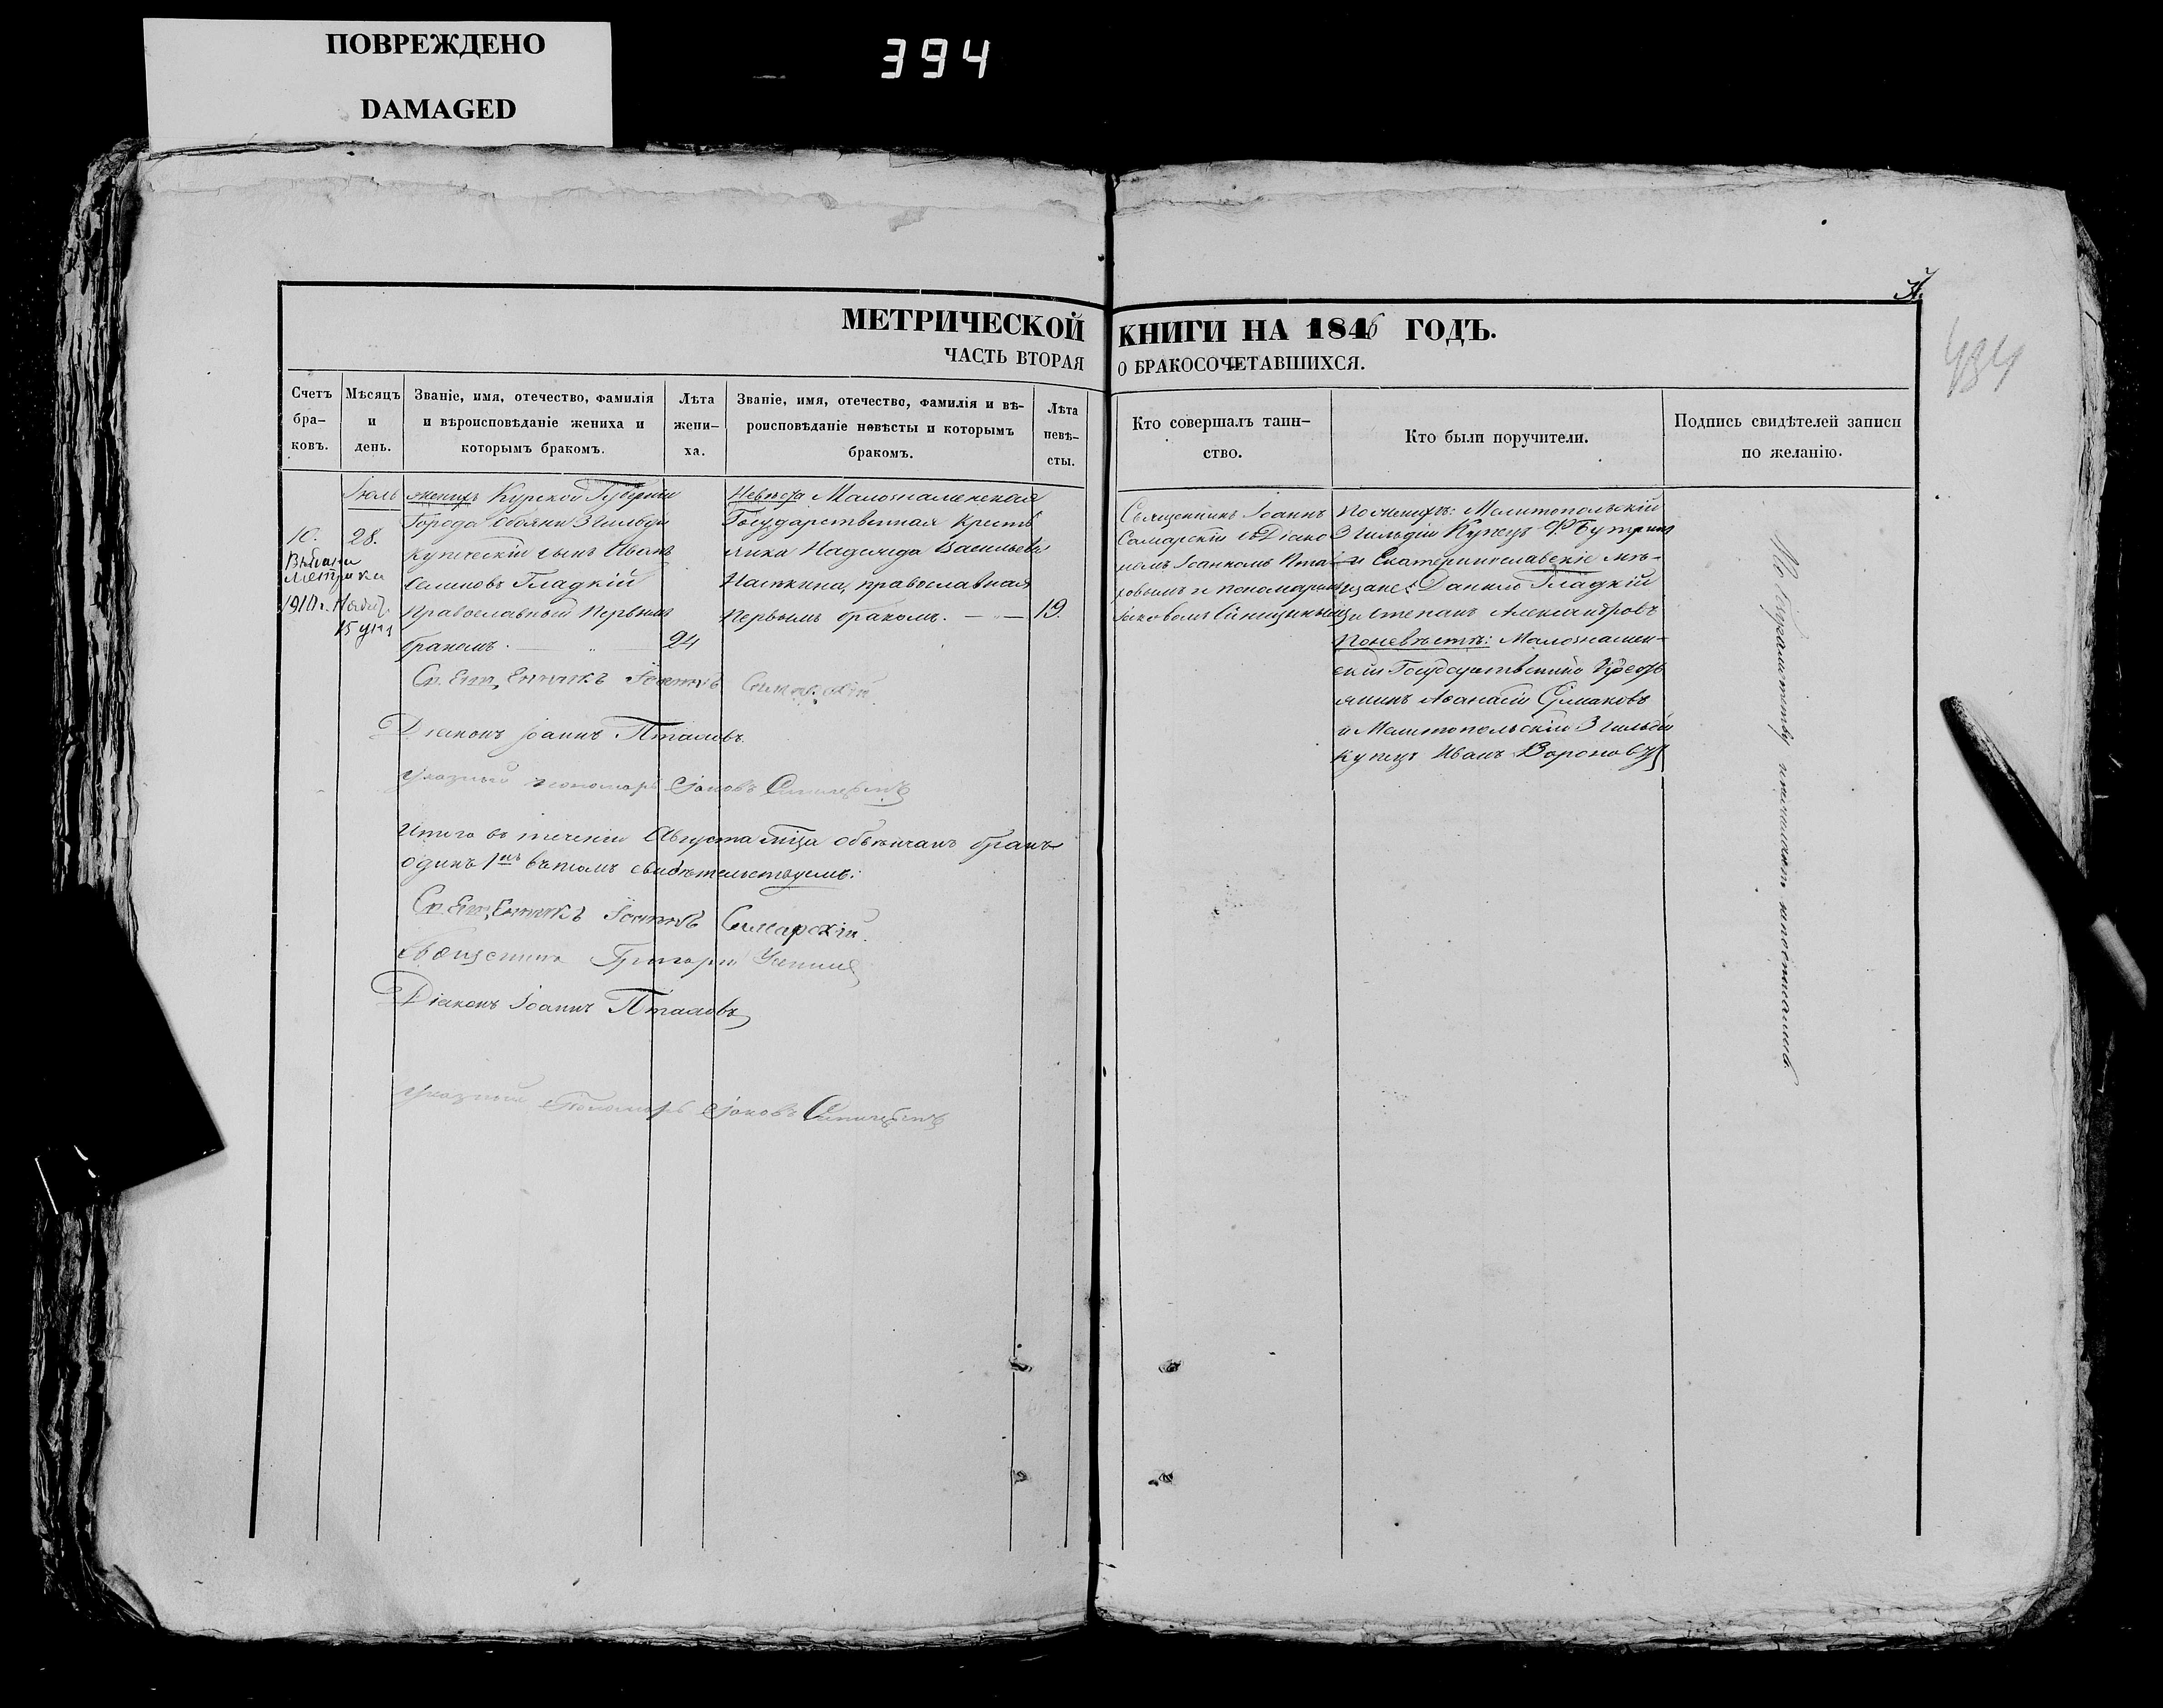 ПОВРЕЖДЕНО
DAMAGED
394
МЕТРИЧЕСКОЙ КНИГИ НА 1846 ГОДЪ.
ЧАСТЬ ВТОРАЯ О БРАКОСОЧЕТАВШИХСЯ.
484
Счетъ бра-
ковъ.
Мѣсяцъ
и
день.
Званіе, имя, отечество, фамилія
и вѣроисповѣданіе жениха и
которымъ бракомъ.
Лѣта
жени-
ха.
Званіе, имя, отечество, фамилія и вѣ-
роисповѣданіе невѣсты и которымъ
бракомъ.
Лѣта
невѣ-
сты.
Кто совершалъ таин-
ство.
Кто были поручители.
Подпись свидѣтелей записи
по желанію.
10.
метрика
1910 г.
Іюль
28.
женихъ Курской Губерніи
Города Обояни 3 гильдіи
купеческій сынъ Иванъ
Гладкій
Православный Первымъ
бракомъ.
24
Невѣста Малознаменская
Государственная Кресть
янка Надежда Васильева
православная
Первымъ бракомъ.
19.
Священникъ Іоаннъ
Самарскій съ Діако
номъ Іоанномъ Пта
ховымъ и пономаремъ
Іаковомъ
По женихѣ: Мелитопольскій
3 гильдіи Купецъ
и Екатеринославскіе мѣ-
щане: Данило Гладкій
и Степанъ Александровъ
По невѣстѣ: Малознамен-
скій Государственный Кресть
янинъ
и Мелитопольскій 3 гильдіи
купецъ Иванъ Вороновъ
Іоаннъ Самарскій
Діаконъ Іоаннъ Птаховъ
Указный пономарь Іаковъ
Итого въ теченіи Августа м-ца обвѣнчанъ бракъ
одинъ 1-нъ въ томъ свидѣтельствуемъ:
Іоаннъ Самарскій
Священникъ Григорій
Діаконъ Іоаннъ Птаховъ
Указный Пономарь Іаковъ